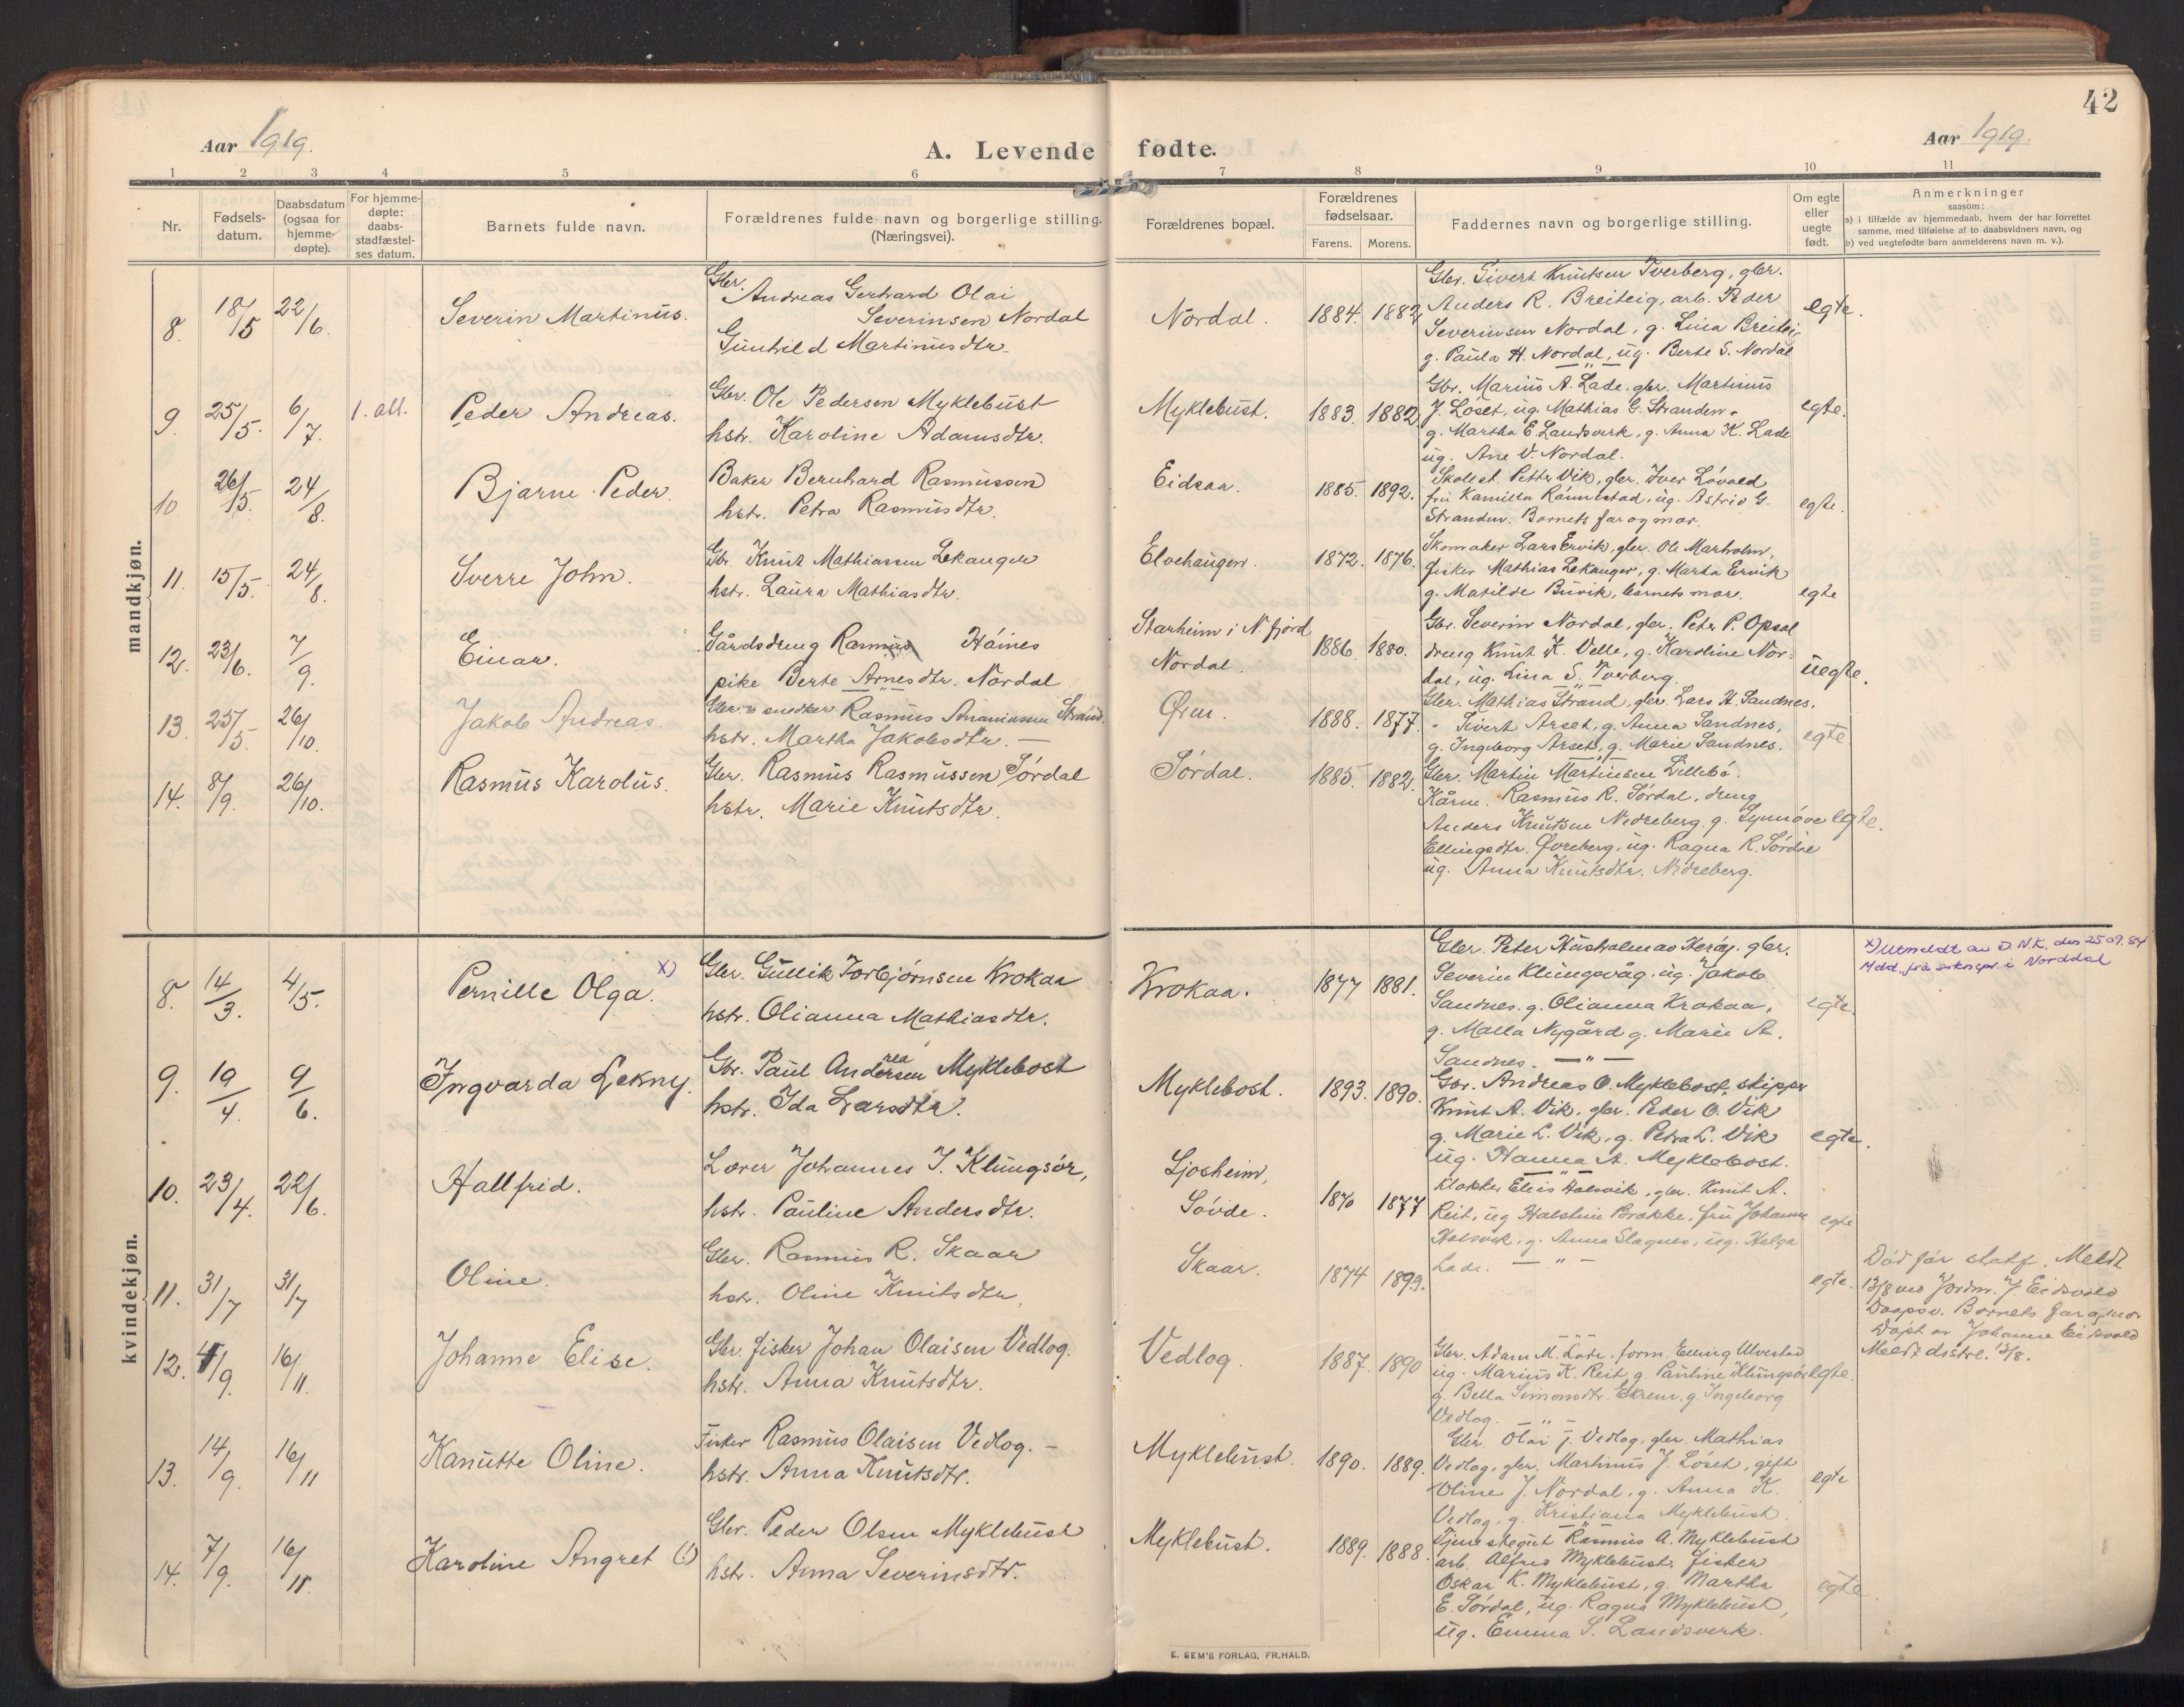 42
Aar 1919.
A. Levende fødte.
Aar 1919.
1 2 3 4 5 6 7 8 9 10 11
Nr.
Fødsels-
datum.
Daabsdatum
(ogsaa for
hjemme-
døpte).
For hjemme-
døpte:
daabs-
stadfæstel-
ses datum.
Barnets fulde navn.
Forældrenes fulde navn og borgerlige stilling.
(Næringsvei).
Forældrenes bopæl.
Forældrenes
fødselsaar.
Farens. Morens.
Faddernes navn og borgerlige stilling.
Om egte
eller
uegte
født.
Anmerkninger
saasom:
a) i tilfælde av hjemmedaab, hvem der har forrettet
samme, med tilføielse af to daabsvidners navn, og
b) ved uegtefødte barn anmelderens navn m. v.).
mandkjøn.
8. 18/5 22/6. Severin Martinus.
Gbr. Andreas Gerhard Olai
Severinsen Nordal
Gunhild Martinusdtr.
Nordal. 1884. 1882.
Gbr. Sivert Knutsen Tverberg, gbr.
Anders R. Breiteig, arb. Peder
Severinsen Nordal, g. Lina Breiteig
g. Paula H. Nordal, ug. Berte S. Nordal
egte.
9. 25/5. 6/7. 1. all. Peder Andreas.
Gbr. Ole Pedersen Myklebust
hstr. Karoline Adamsdtr.
Myklebust. 1883. 1882.
Gbr. Marius A. Lade, gbr. Martinus
J. Løset, ug. Mathias G. Stranden,
g. Martha E. Landsverk, g. Anna K. Lade
ug. Ane V. Nordal.
egte.
10 26/5. 24/8. Bjarne Peder.
Baker Bernhard Rasmussen
hstr. Petra Rasmusdtr.
Eidsaa. 1885. 1892.
Skolest. Petter Vik, gbr. Iver Løvold
fru Kamilla Rønnestad, ug. Astrid G.
Stranden. Barnets far og mor.
egte.
11. 15/5. 24/8. Sverre John.
Gbr. Knut Mathiassen Lekanger
hstr. Laura Mathiasdtr.
Elvehaugen. 1872. 1876.
Skomaker Lars Ervik, gbr. Ole Marholm,
fisker Mathias Lekanger, g. Marta Ervik
g. Matilde Buvik, barnets mor.
egte
12. 23/6. 7/9. Einar.
Gårdsdreng Rasmus Håines
pike Berte Arnesdtr. Nordal
Starheim i N. fjord
Nordal. 1886. 1880.
Gbr. Severin Nordal, gbr. Peter P. Opsal
dreng Knut K. Velle, g. Karoline Nor-
dal, ug. Lina S. Tverberg.
uegte.
13. 25/5. 26/10. Jakob Andreas
Gbr. & snedker Rasmus Ananiassen Strand.
hstr. Martha Jakobsdtr. —
Øren. 1888. 1877.
Gbr. Mathias Strand, gbr. Lars H. Sandnes.
" Sivert Arset, g. Anna Sandnes,
g. Ingeborg Arset, g. Marie Sandnes.
egte
14. 8/9. 26/10. Rasmus Karolus.
Gbr. Rasmus Rasmussen Sørdal
hstr. Marie Knutsdtr.
Sørdal. 1885. 1882.
Gbr. Martin Martinsen Lillebø.
Kårm. Rasmus R. Sørdal, dreng
Anders Knutsen Nedreberg. g. Synnøve
Ellingsdtr. Øvreberg, ug. Ragna R. Sørdal
ug. Anna Knutsdtr. Nedreberg.
egte.
kvindekjøn.
8. 14/3. 4/5. Pernille Olga. x)
Gbr. Gullik Torbjørnsen Krokaa
hstr. Olianna Mathiasdtr.
Krokaa. 1877 1881.
Gbr. Peter Husholmao Herøy. gbr.
Severin Klungsvåg, ug. Jakob
Sandnes. g. Olianna Krokaa,
g. Malla Nygård g. Marie A.
Sandnes. — " —
egte.
x) Utmeldt av D.N.K. den 25.09.84
Medd. frå sokнepr. i Norddal
9. 19/4. 9/6. Ingvarda Lekny.
Gbr. Paul Andersen Myklebost
hstr. Ida Larsdtr.
Myklebost. 1893. 1890.
Gbr. Andreas O. Myklebost, skipper
Knut A. Vik, gbr. Peder O. Vik
g. Marie L. Vik, g. Petra L. Vik
ug. Hanna A. Myklebost.
egte.
10. 23/4. 22/6. Hallfrid.
Lærer Johannes J. Klungsør,
hstr. Pauline Andersdtr.
Ljosheim,
Søvde. 1870 1877
Klokker Elias Halsvik, gbr. Knut A.
Reit, ug Halstein Brekke, fru Johanne
Halsvik, g. Anna Slagnes, ug. Helga
Lade. — " —
egte
11. 31/7 31/7 Oline.
Gbr. Rasmus R. Skaar
hstr. Oline Knutsdtr.
Skaar. 1874 1899.
egte.
Død før statf. Meldt
13/8 ved Jordm. J. Eidsvold
Daapsv. Barnets far og mor
Døpt av Johanne Eidsvold
Meldt distrl. 13/8.
12. 4/9. 16/11. Johanne Elise.
Gbr. fisker Johan Olaisen Vedlog.
hstr. Anna Knutsdtr.
Vedlog. 1887. 1890
Gbr. Adam M. Lade, form. Elling Ulvestad
ug. Marius K. Reit, g. Pauline Klungsør
g. Bella Simonsdtr. Ekrem, g. Ingeborg
Vedlog. — " —
egte.
13. 14/9. 16/11 Kanutte Oline.
Fisker Rasmus Olaisen Vedlog. —
hstr. Anna Knutsdtr.
Myklebust. 1890. 1889.
Gbr. Olai J. Vedlog, gbr. Mathias
Vedlog, gbr. Martinus J. Løset, gift
Oline J. Nordal, g. Anna K.
Vedlog, g. Kristiana Myklebust.
egte
14. 7/9. 16/11. Karoline Angret (!)
Gbr. Peder Olsen Myklebust
hstr. Anna Severinsdtr.
Myklebust. 1889. 1888.
Tjenestegut Rasmus A. Myklebust
arb. Alfred Myklebust, fisker
Oskar K. Myklebust, g. Martha
E. Sørdal, ug. Ragna Myklebust,
ug. Emma S. Landsverk.
egte
E. SEM'S FORLAG, FR.HALD.